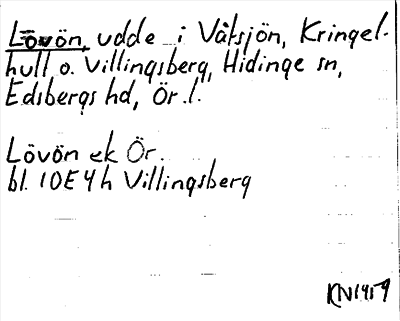 Lövön, udde i Våtsjön, Kringel-
hull o. Villingsberg, Hidinge sn,
Edsbergs hd, Ör. l.
Lövön ek Ör.
bl. 10E4h Villingsberg